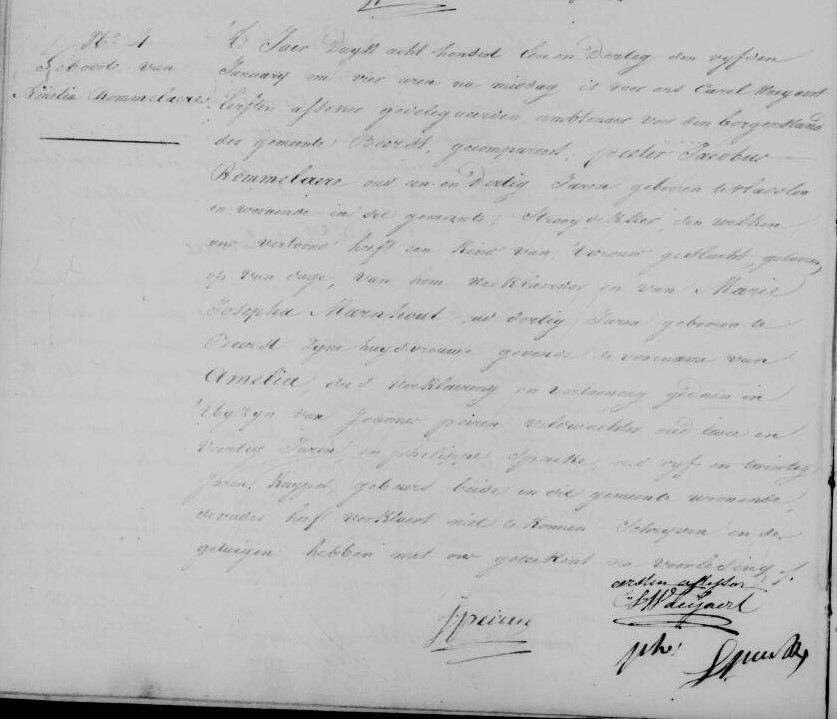 No 4
Geboorte van
Amelia Hommelaere
't Jaer Duyst acht honderd een en Dertig den vyfden
January om vier uren na middag is voor ons Carel
Eersten assessor gedelegueerden ambtenaer van den borgerstand
der gemeente Beerst, gecompareert, pieter Jacobus
Hommelaere oud een en Dertig Jaren geboren te vladsloo
en woonende in de gemeente, Strooydekker, den welken
ons vertoond heeft een kind van 't vrouw geslacht, geboren
op van dage, van hem verklaerder en van Marie
Josepha Marnhout oud dertig Jaren geboren te
Beerst Zyne huysvrouwe gevende de voorname van
Amelia, dees verklaering en vertooning gedaen in
't byzyn van Joannes peiren, veldwachter oud twee en
Veertig Jaren en philippe Spaeke, oud vyf en twintig
Jaren, Kuyper, gebuers beide in dit gemeente woonende,
de vader heeft verklaert niet te konnen Schryven en de
getuigen hebben met ons geteekent na voorlesing
eersten assessor
J peiren
ph: